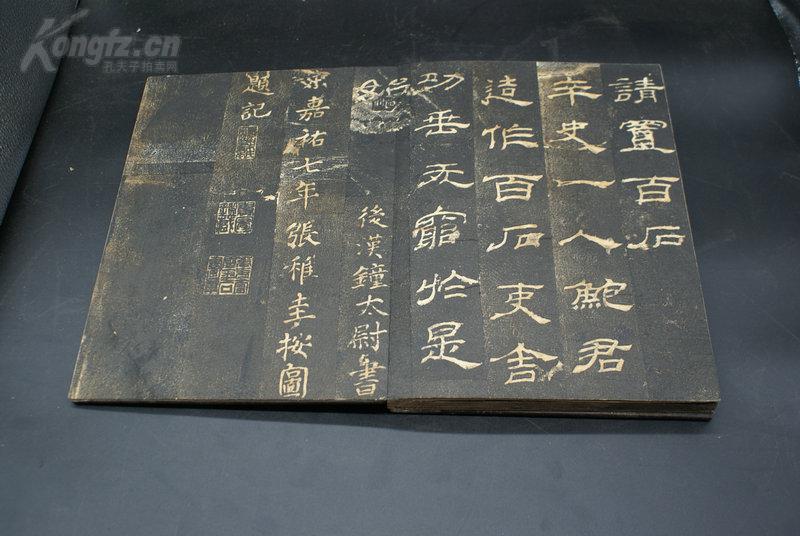 Kongfz.cn
孔夫子拍卖网
請置百石
卒史一人鮑君
造作百石吏舍
功垂无窮於是
後漢鐘太尉書
宋嘉祐七年張稚圭按圖
題記